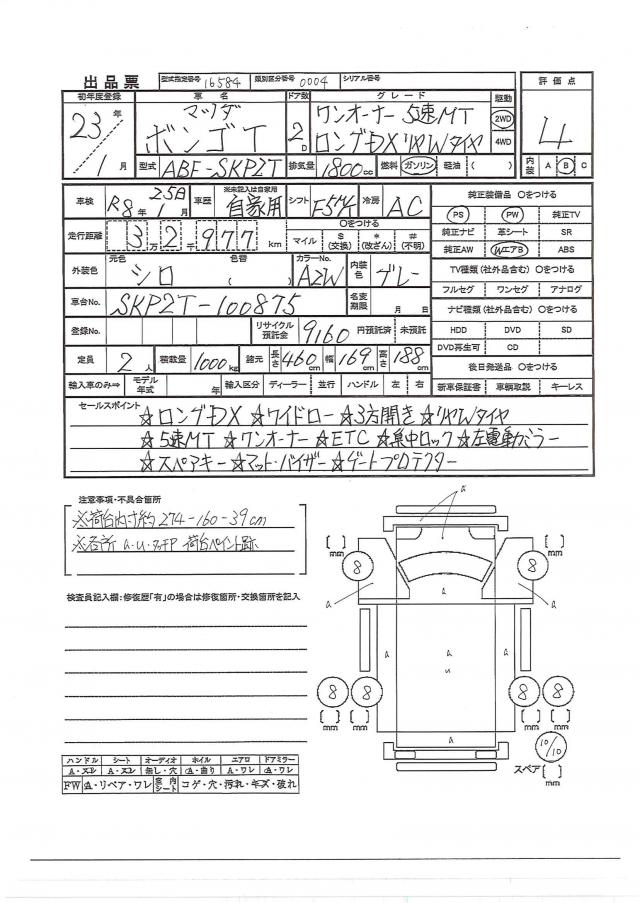 出品票 型式指定番号 16584 類別区分番号 0004 シリアル番号
初年度登録 車名 ドア数 グレード 駆動 評価点
23年 1月 マツダ ボンゴT 2D ワンオーナー 5速MT 2WD 4
ロングDX リヤWタイヤ 4WD
型式 ABF-SKP2T 排気量 1800cc 燃料 ガソリン・軽油・( ) 内装 A B C
車検 R8年 1月 25日 車歴 ※未記入は自家用 自家用 シフト F5MT 冷房 AC 純正装備品 ○をつける
PS PW 純正TV
走行距離 3万2千977km ○をつける マイル $(交換) *(改ざん) #(不明) 純正ナビ 革シート SR
純正AW WエアB ABS
外装色 元色 シロ 色替 ( ) カラーNo. A2W 内装色 グレー TV種類(社外品含む) ○をつける
フルセグ ワンセグ アナログ
車台No. SKP2T-100875 名変期限 月 日 ナビ種類(社外品含む) ○をつける
登録No. リサイクル預託金 9160 円預託済 未預託 HDD DVD SD
DVD再生可 CD
定員 2人 積載量 1000kg 諸元 長さ 460cm 幅 169cm 高さ 188cm 後日発送品 ○をつける
輸入車のみ⇒ モデル年式 年 輸入区分 ディーラー・並行 ハンドル 左・右 新車保証書 車輌取説 キーレス
セールスポイント
☆ロングDX ☆ワイドロー ☆3方開き ☆リヤWタイヤ
☆5速MT ☆ワンオーナー ☆ETC ☆集中ロック ☆左電動ミラー
☆スペアキー ☆マット・バイザー ☆ゲートプロテクター
注意事項・不具合箇所
※荷台内寸約274-160-39cm
※各所 a・u・タッチP 荷台ペイント跡
検査員記入欄:修復歴「有」の場合は修復箇所・交換箇所を記入
a
[ ]mm [ ]mm
8 8
a a
a
a a a
s
8 8 8 8
[ ]mm [ ]mm [ ]mm [ ]mm
a
10/10
スペア[ ]mm
ハンドル シート オーディオ ホイル エアロ ドアミラー
A・スレ A・スレ 無し・穴 A・曲り A・ワレ A・ワレ
FW A・リペア・ワレ 室内シート コゲ・穴・汚れ・キズ・破れ